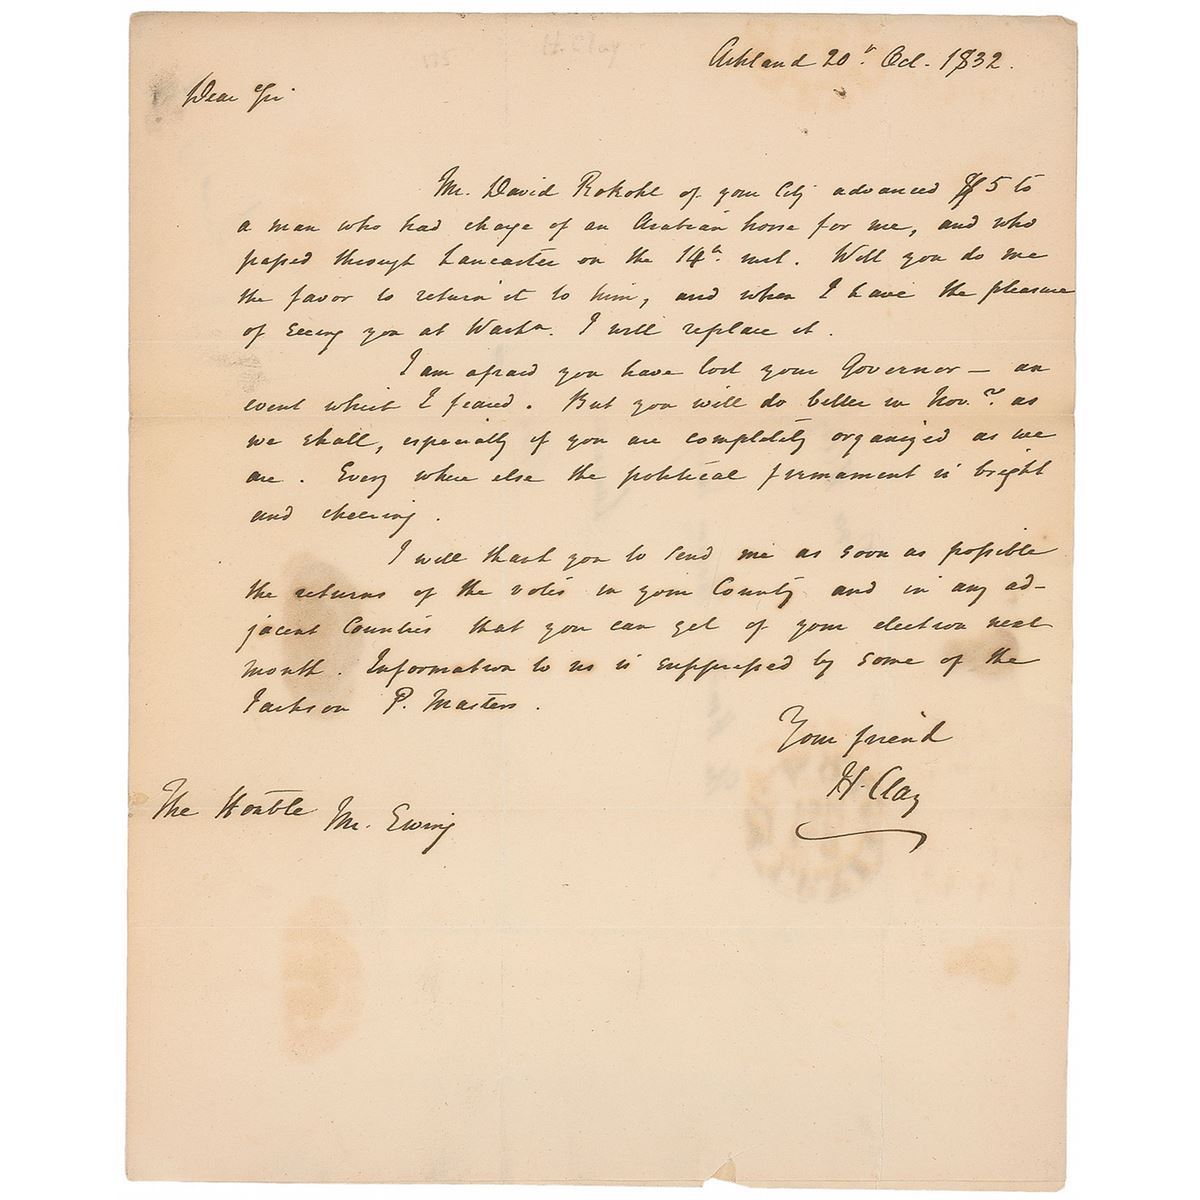 H. Clay
Ashland 20th Oct. 1832.
Dear Sir
Mr. David Rokohl of your City advanced $5 to
a man who had charge of an Arabian horse for me, and who
passed through Lancaster on the 14th inst. Will you do me
the favor to return it to him, and when I have the pleasure
of seeing you at Washn. I will replace it.
I am afraid you have lost your Governor — an
event which I feared. But you will do better in Novr. as
we shall, especially if you are completely organized as we
are. Every where else the political firmament is bright
and cheering.
I will thank you to send me as soon as possible
the returns of the votes in your County and in any ad-
jacent Counties that you can get of your election next
month. Information to us is suppressed by some of the
Jackson P. Masters.
Your friend
H. Clay
The Honble
Mr. Ewing